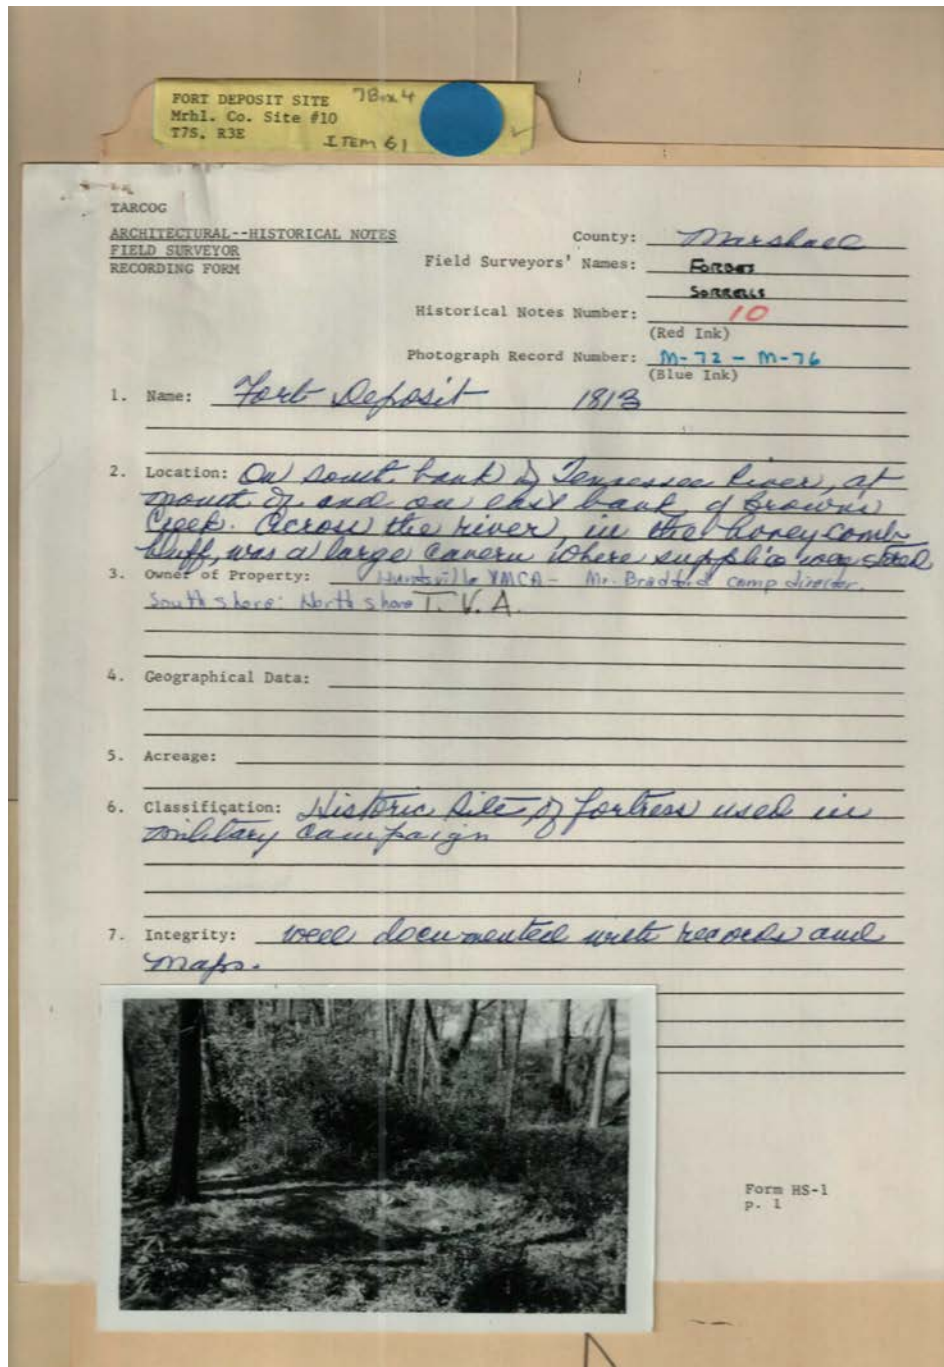 FORT DEPOSIT SITE 7Box4
Mrhl. Co. Site #10
T7S, R3E
ITEM 61
TARCOG
ARCHITECTURAL--HISTORICAL NOTES
FIELD SURVEYOR
RECORDING FORM
County: Marshall
Field Surveyors' Names: Forbes
Sorrells
Historical Notes Number: 10
(Red Ink)
Photograph Record Number: M-72 - M-76
(Blue Ink)
1. Name: Fort Deposit 1813
2. Location: On south bank of Tennessee River, at
mouth of and on east bank of Browns
Creek. Across the river, in the honeycomb
bluff, was a large cavern where supplies were stored
3. Owner of Property: Huntsville YMCA - Mr. Bradford camp director.
South shore: North shore T. V. A.
4. Geographical Data:
5. Acreage:
6. Classification: Historic Site of fortress used in
military campaign
7. Integrity: well documented with records and
maps.
Form HS-1
p. 1